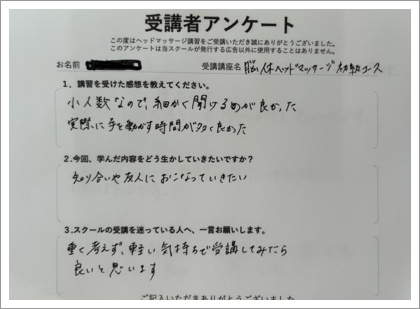 受講者アンケート
この度はヘッドマッサージ講習をご受講いただき誠にありがとうございました。
このアンケートは当スクールが発行する広告以外に使用することはありません。
お名前 受講講座名 脳体ヘッドマッサージ初級コース
1、講習を受けた感想を教えてください。
小人数なので、細かく聞けるのが良かった
実際に手を動かす時間が多く良かった
2.今回、学んだ内容をどう生かしていきたいですか?
知り合いや友人におこなっていきたい
3.スクールの受講を迷っている人へ、一言お願いします。
重く考えず、軽い気持ちで受講してみたら
良いと思います
ご記入いただきありがとうございました